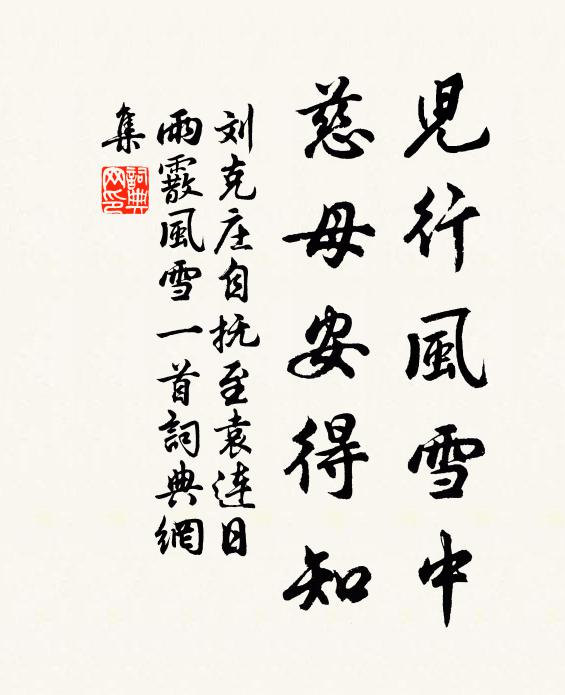 兒行風雪中
慈母安得知
刘克庄自抚至袁连日
雨霰風雪一首詞典網
集
詞典网印